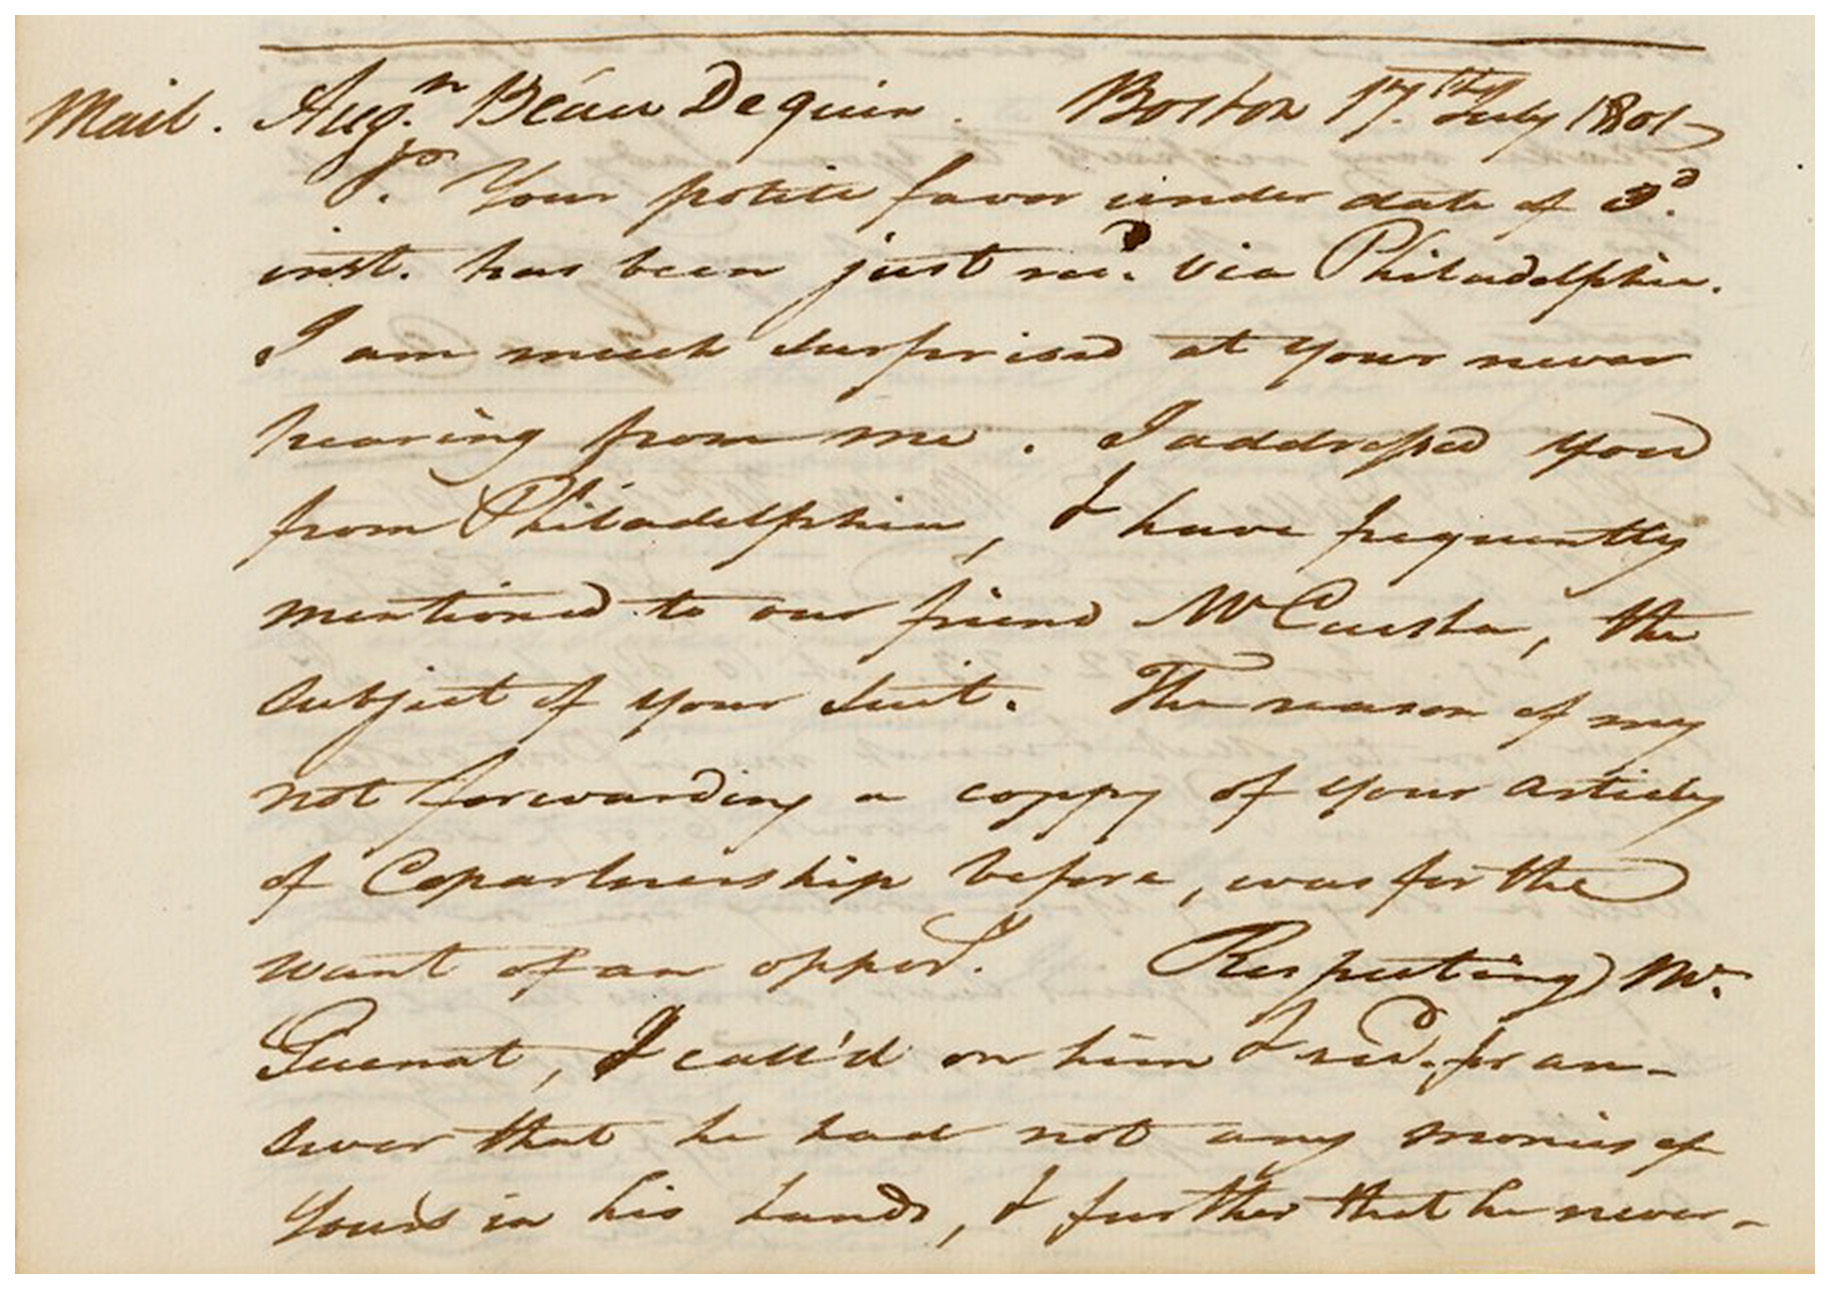 Mail. Augn. Beau Dequin. Boston 17th July 1801
Sr. Your polite favor under date of 3d.
inst. has been just recd. via Philadelphia.
I am much surprised at your never
hearing from me. I addressed you
from Philadelphia, & have frequently
mentioned to our friend Mr Cuesta, the
subject of your suit. The reason of my
not forwarding a coppy of your articles
of Copartnership before, was for the
want of an oppord. Respecting Mr.
Guenat, I call'd on him & recd. for an-
swer that he had not any monies of
yours in his hands, & further that he never-